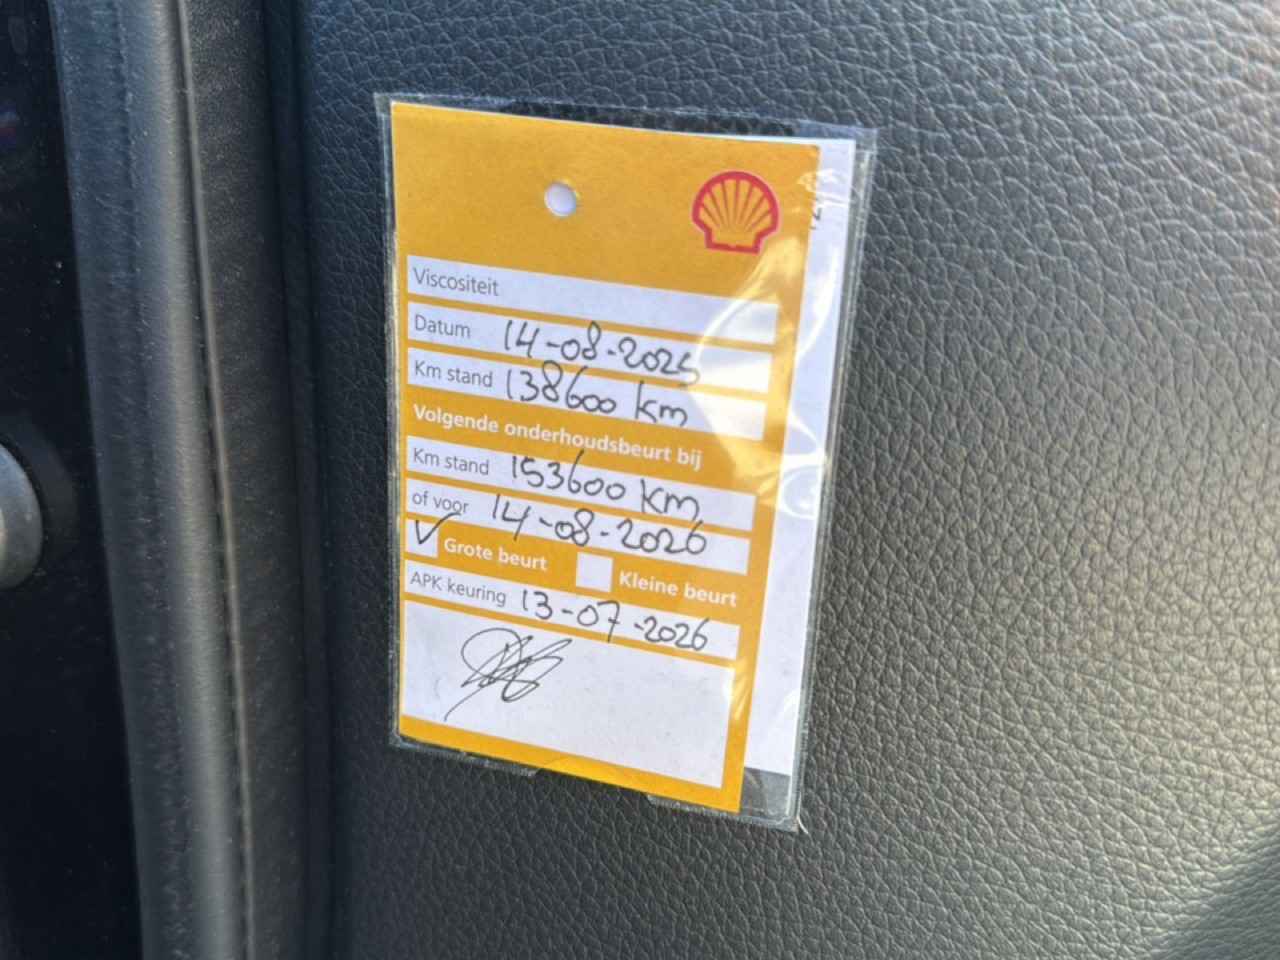 Viscositeit
Datum 14-08-2025
Km stand 138600 km
Volgende onderhoudsbeurt bij
Km stand 153600 km
of voor 14-08-2026
Grote beurt Kleine beurt
APK keuring 13-07-2026